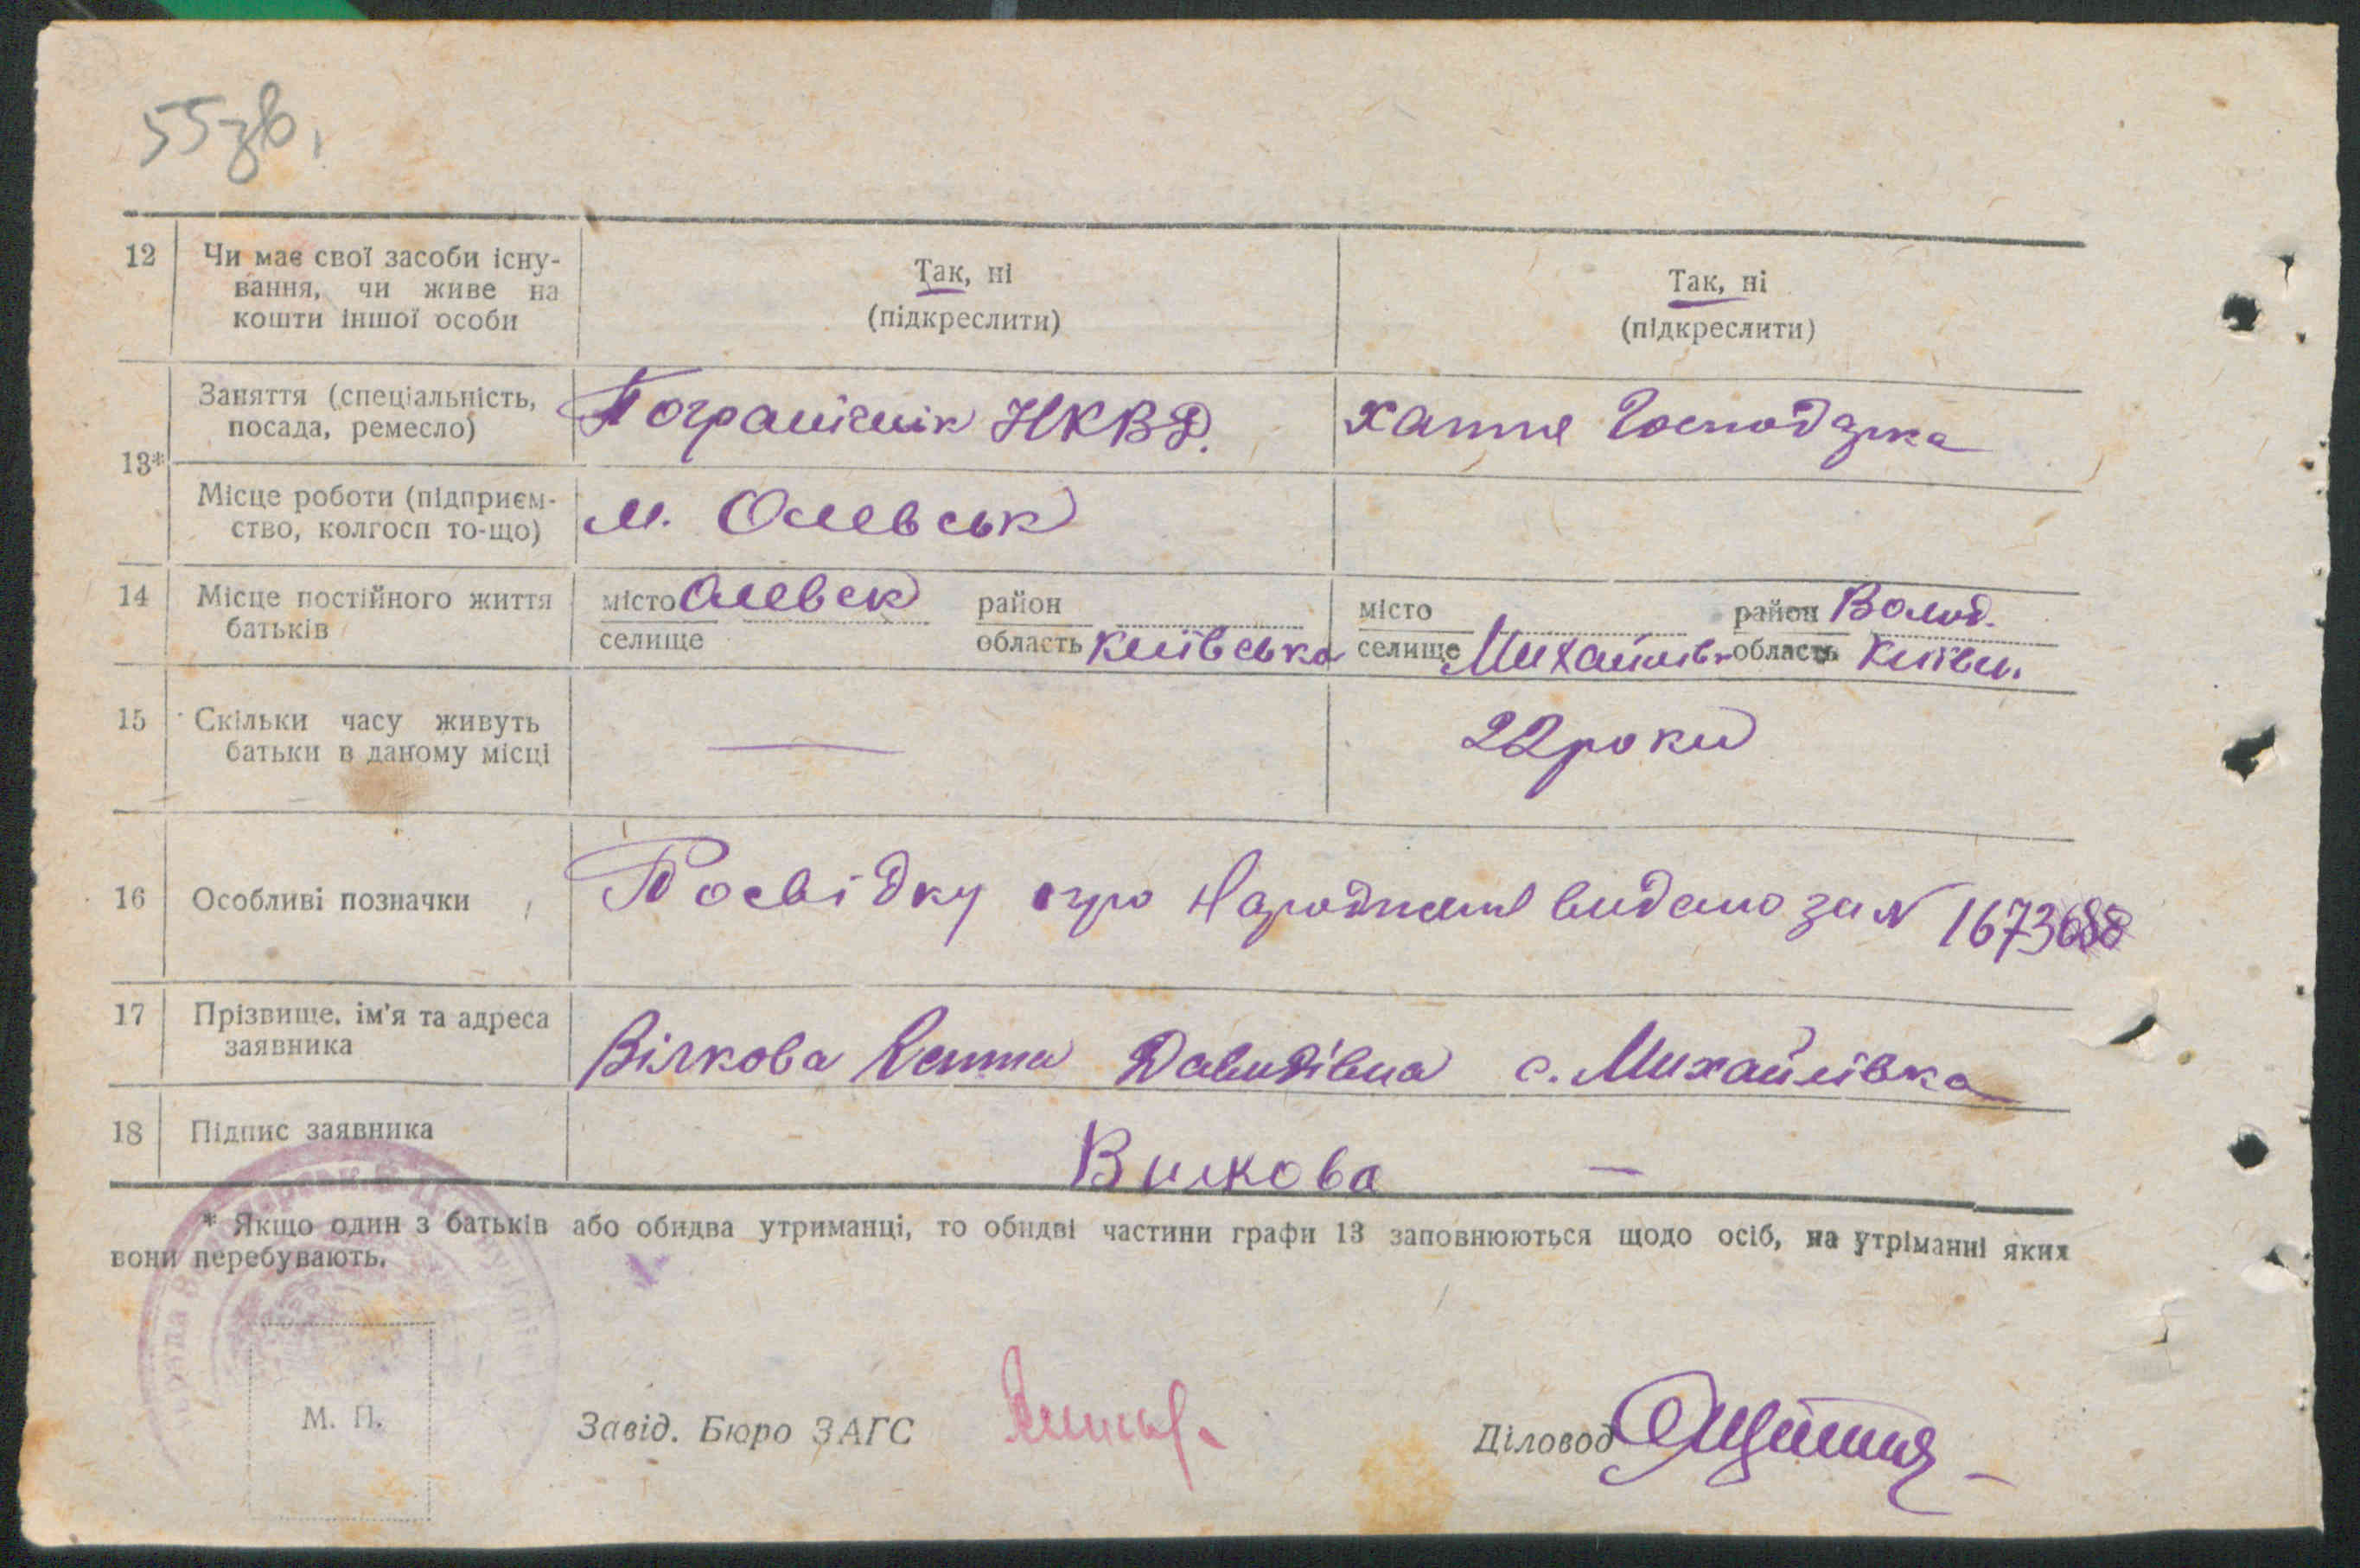 55зв.
12 Чи має свої засоби існу-
вання, чи живе на
кошти іншої особи
Так, ні
(підкреслити)
Так, ні
(підкреслити)
13*
Заняття (спеціальність,
посада, ремесло)
Пограніснік НКВД.
хатня Господарка
Місце роботи (підприєм-
ство, колгосп то-що)
м. Олевськ
14 Місце постійного життя
батьків
місто Олевск район
селище область Київська
місто район Волод.
селище Михайлівк область Київск.
15 Скільки часу живуть
батьки в даному місці
—
22 роки
16 Особливі позначки
Посвідку про Народження видано за № 1673688
17 Прізвище, ім'я та адреса
заявника
Вілкова Ганна Давидівна с. Михайлівка
18 Підпис заявника
Вилкова —
* Якщо один з батьків або обидва утриманці, то обидві частини графи 13 заповнюються щодо осіб, на утріманні яких
вони перебувають.
М. П.
Завід. Бюро ЗАГС
Діловод